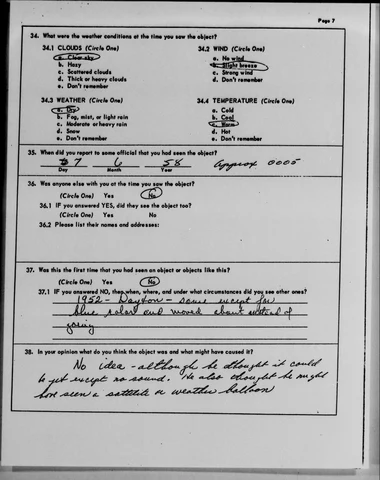 Page 7
34. What were the weather conditions at the time you saw the object?
34.1 CLOUDS (Circle One)
a. Clear sky
b. Hazy
c. Scattered clouds
d. Thick or heavy clouds
e. Don't remember
34.2 WIND (Circle One)
a. No wind
b. Slight breeze
c. Strong wind
d. Don't remember
34.3 WEATHER (Circle One)
a. Dry
b. Fog, mist, or light rain
c. Moderate or heavy rain
d. Snow
e. Don't remember
34.4 TEMPERATURE (Circle One)
a. Cold
b. Cool
c. Warm
d. Hot
e. Don't remember
35. When did you report to some official that you had seen the object?
7 6 58 Approx 0005
Day Month Year
36. Was anyone else with you at the time you saw the object?
(Circle One) Yes No
36.1 IF you answered YES, did they see the object too?
(Circle One) Yes No
36.2 Please list their names and addresses:
37. Was this the first time that you had seen an object or objects like this?
(Circle One) Yes No
37.1 IF you answered NO, then when, where, and under what circumstances did you see other ones?
1952 - Dayton - same except for
blue color and moved about instead of
38. In your opinion what do you think the object was and what might have caused it?
No idea - although he thought it could
be jet except no sound. He also thought he might
have seen a satellite or weather balloon